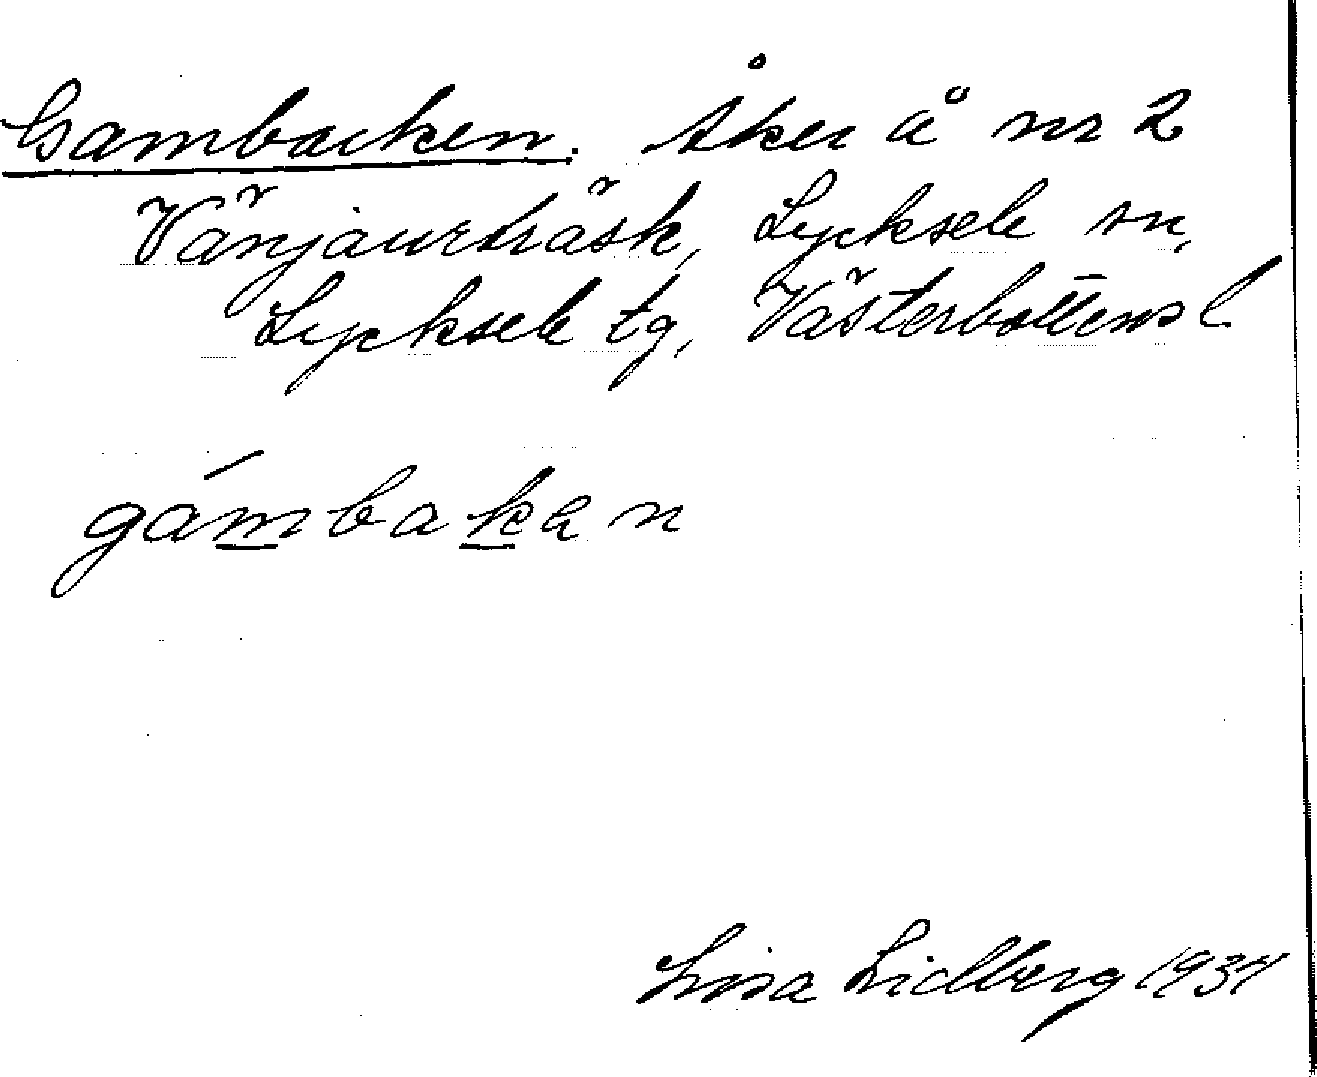 Gambacken. Åker å nr 2
Vänjaurträsk, Lycksele sn,
Lycksele tg, Västerbottens l
gámbakan
Lisa Lidberg 1934